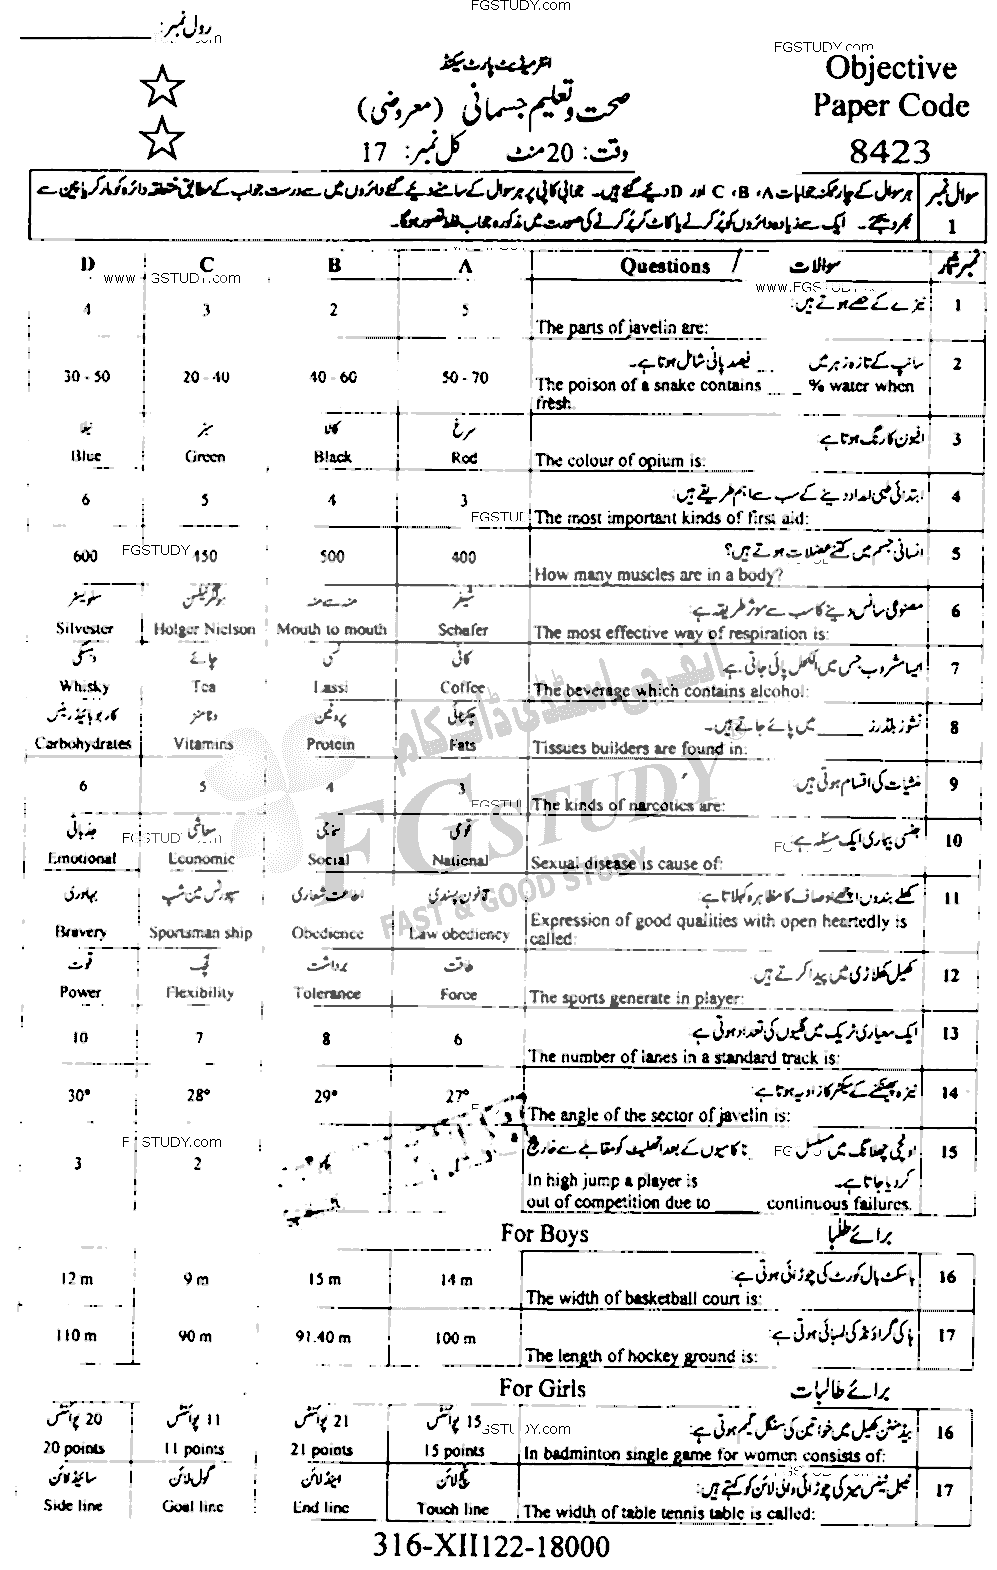 FGSTUDY.com
رول نمبر:
انٹرمیڈیٹ پارٹ سیکنڈ
FGSTUDY.com
Objective
صحت و تعلیم جسمانی (معروضی)
Paper Code
وقت: 20 منٹ کل نمبر: 17
8423
سوال نمبر 1
ہر سوال کے چار ممکنہ جوابات A، B، C اور D دیئے گئے ہیں۔ جوابی کاپی پر ہر سوال کے سامنے دیئے گئے دائروں میں سے درست جواب کے مطابق متعلقہ دائرہ کو مارکر یا پین سے
بھر دیجئے۔ ایک سے زیادہ دائروں کو پُر کرنے یا کاٹ کر پُر کرنے کی صورت میں مذکورہ جواب غلط تصور ہوگا۔
www.FGSTUDY.com
D C B A Questions / سوالات نمبر شمار
www.FGSTUDY.com
نیزے کے حصے ہوتے ہیں: 1
4 3 2 5
The parts of javelin are:
سانپ کے تازہ زہر میں ___ فیصد پانی شامل ہوتا ہے۔ 2
30 - 50 20 - 40 40 - 60 50 - 70
The poison of a snake contains ___ % water when
fresh.
نیلا سبز کالا سرخ
افیون کا رنگ ہوتا ہے: 3
Blue Green Black Red The colour of opium is:
ابتدائی طبی امداد دینے کے سب سے اہم طریقے ہیں: 4
6 5 4 3
The most important kinds of first aid:
انسانی جسم میں کتنے عضلات ہوتے ہیں؟ 5
600 450 500 400
FGSTUDY
How many muscles are in a body?
سلویسٹر ہولگر نیلسن منہ سے منہ شیفر
مصنوعی سانس دینے کا سب سے موثر طریقہ ہے: 6
Silvester Holger Nielson Mouth to mouth Schafer The most effective way of respiration is:
وہسکی چائے لسی کافی
ایسا مشروب جس میں الکحل پائی جاتی ہے: 7
Whisky Tea Lassi Coffee The beverage which contains alcohol:
کاربوہائیڈریٹس وٹامنز پروٹین چکنائی
ٹشوز بلڈرز ___ میں پائے جاتے ہیں۔ 8
Carbohydrates Vitamins Protein Fats Tissues builders are found in:
منشیات کی اقسام ہوتی ہیں: 9
6 5 4 3
The kinds of narcotics are:
جذباتی معاشی سماجی قومی
جنسی بیماری ایک مسئلہ ہے: 10
Emotional Economic Social National Sexual disease is cause of:
بہادری سپورٹس مین شپ اطاعت شعاری قانون پسندی
کھلے بندوں اچھے اوصاف کا مظاہرہ کہلاتا ہے: 11
Bravery Sportsman ship Obedience Law obediency Expression of good qualities with open heartedly is
called:
قوت لچک برداشت طاقت
کھیل کھلاڑی میں پیدا کرتے ہیں: 12
Power Flexibility Tolerance Force The sports generate in player:
ایک معیاری ٹریک میں گلیوں کی تعداد ہوتی ہے: 13
10 7 8 6
The number of lanes in a standard track is:
نیزہ پھینکنے کے سیکٹر کا زاویہ ہوتا ہے: 14
30° 28° 29° 27°
The angle of the sector of javelin is:
FGSTUDY.com
اونچی چھلانگ میں مسلسل ناکامیوں کے بعد اتھلیٹ کو مقابلے سے خارج 15
کر دیا جاتا ہے۔
3 2
In high jump a player is
out of competition due to ___ continuous failures.
For Boys برائے طلبا
باسکٹ بال کورٹ کی چوڑائی ہوتی ہے: 16
12 m 9 m 15 m 14 m
The width of basketball court is:
ہاکی گراؤنڈ کی لمبائی ہوتی ہے: 17
110 m 90 m 91.40 m 100 m
The length of hockey ground is:
For Girls برائے طالبات
20 پوائنٹس 11 پوائنٹس 21 پوائنٹس 15 پوائنٹس
بیڈمنٹن کھیل میں خواتین کی سنگل گیم ہوتی ہے: 16
20 points 11 points 21 points 15 points In badminton single game for women consists of:
سائیڈ لائن گول لائن اینڈ لائن ٹچ لائن
ٹیبل ٹینس میز کی چوڑائی والی لائن کو کہتے ہیں: 17
Side line Goal line End line Touch line The width of table tennis table is called:
316-XII122-18000
ایف جی اسٹڈی ڈاٹ کام
FGSTUDY
FAST & GOOD STUDY